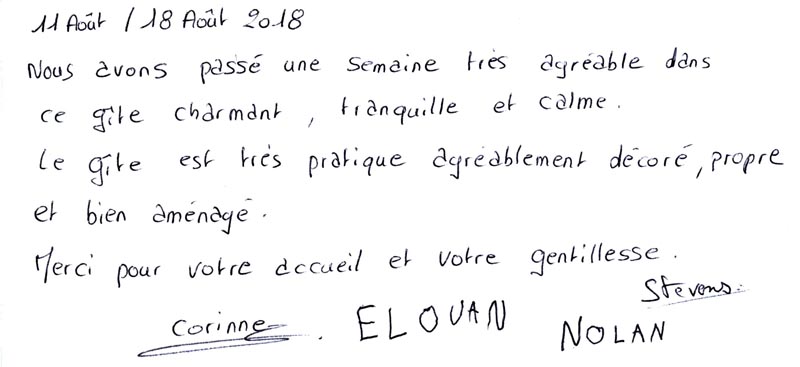 11 Août / 18 Août 2018
Nous avons passé une semaine très agréable dans
ce gîte charmant, tranquille et calme.
Le gîte est très pratique agréablement décoré, propre
et bien aménagé.
Merci pour votre accueil et votre gentillesse.
Stevens.
Corinne. ELOUAN NOLAN